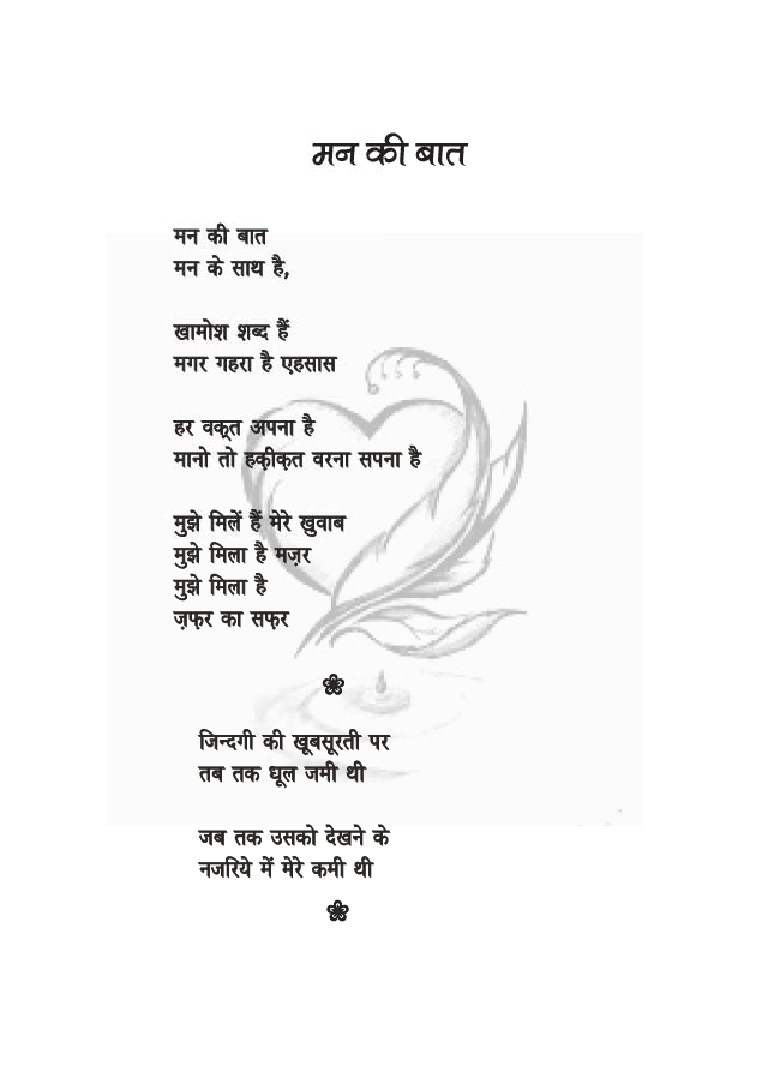 मन की बात
मन की बात
मन के साथ है,
खामोश शब्द हैं
मगर गहरा है एहसास
हर वक़्त अपना है
मानो तो हक़ीक़त वरना सपना है
मुझे मिलें हैं मेरे ख़ुवाब
मुझे मिला है मज़र
मुझे मिला है
ज़फ़र का सफ़र
जिन्दगी की खूबसूरती पर
तब तक धूल जमी थी
जब तक उसको देखने के
नजरिये में मेरे कमी थी